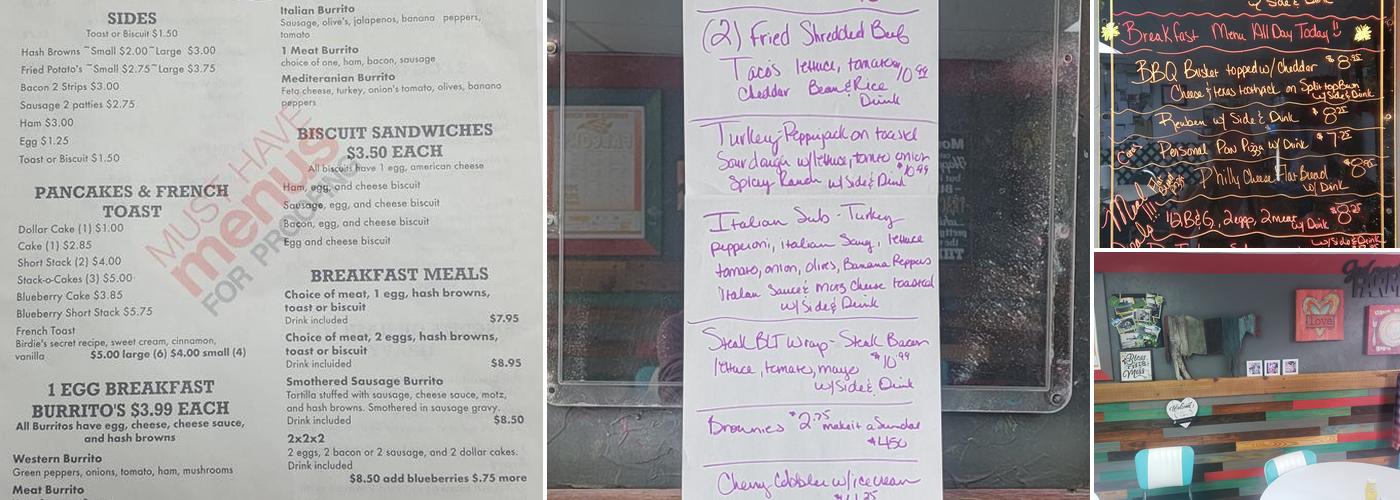 SIDES
Toast or Biscuit $1.50
Hash Browns ~Small $2.00~Large $3.00
Fried Potato's ~Small $2.75~Large $3.75
Bacon 2 Strips $3.00
Sausage 2 patties $2.75
Ham $3.00
Egg $1.25
Toast or Biscuit $1.50
PANCAKES & FRENCH
TOAST
Dollar Cake (1) $1.00
Cake (1) $2.85
Short Stack (2) $4.00
Stack-o-Cakes (3) $5.00
Blueberry Cake $3.85
Blueberry Short Stack $5.75
French Toast
Birdie's secret recipe, sweet cream, cinnamon,
vanilla $5.00 large (6) $4.00 small (4)
1 EGG BREAKFAST
BURRITO'S $3.99 EACH
All Burritos have egg, cheese, cheese sauce,
and hash browns
Western Burrito
Green peppers, onions, tomato, ham, mushrooms
Meat Burrito
Italian Burrito
Sausage, olive's, jalapenos, banana peppers,
tomato
1 Meat Burrito
choice of one, ham, bacon, sausage
Mediteranian Burrito
Feta cheese, turkey, onion's tomato, olives, banana
peppers
BISCUIT SANDWICHES
$3.50 EACH
All biscuits have 1 egg, american cheese
Ham, egg, and cheese biscuit
Sausage, egg, and cheese biscuit
Bacon, egg, and cheese biscuit
Egg and cheese biscuit
BREAKFAST MEALS
Choice of meat, 1 egg, hash browns,
toast or biscuit
Drink included $7.95
Choice of meat, 2 eggs, hash browns,
toast or biscuit
Drink inlcuided $8.95
Smothered Sausage Burrito
Tortilla stuffed with sausage, cheese sauce, motz,
and hash browns. Smothered in sausage gravy.
Drink included $8.50
2x2x2
2 eggs, 2 bacon or 2 sausage, and 2 dollar cakes.
Drink included
$8.50 add blueberries $.75 more
MUST HAVE
menus
FOR PROOFING
(2) Fried Shredded Beef
Tacos lettuce, tomato, 10.99
Cheddar Bean & Rice
Drink
Turkey-Pepperjack on toasted
Sourdough w/lettuce, tomato onion
Spicy Ranch w/Side & Drink $10.99
Italian Sub - Turkey
pepperoni, italian Saug, lettuce
tomato, onion, olives, Banana Peppers
italian Sauce & Motz Cheese toasted
w/Side & Drink
Steak BLT Wrap - Steak Bacon
lettuce, tomato, mayo $10.99
w/Side & Drink
Brownies $2.75 make it a Sundae
$4.50
Cherry Cobbler w/icecream
w/Side & Drink
Breakfast Menu All Day Today!!
BBQ Brisket topped w/ Cheddar $8.95
Cheese & texas toothpick on Split top Bun
w/Side & Drink
Reuben w/ Side & Drink $8.25
Personal Pan Pizza w/ Drink $7.25
Philly Cheese Flat Bread $8.95
w/ Drink
Meal
Deals
1/2 B&G, 2 eggs, 2 meat w/ Drink $8.25
w/Side & Drink
love
Bless
this
Mess